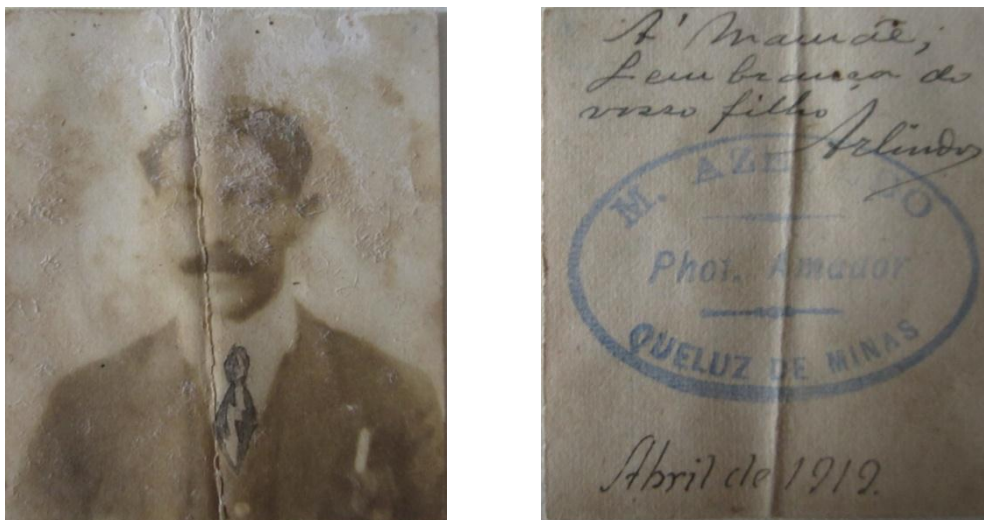 A' Mamãe;
Lembrança do
vosso filho
Arlindo
M. AZEVEDO
Phot. Amador
QUELUZ DE MINAS
Abril de 1919.